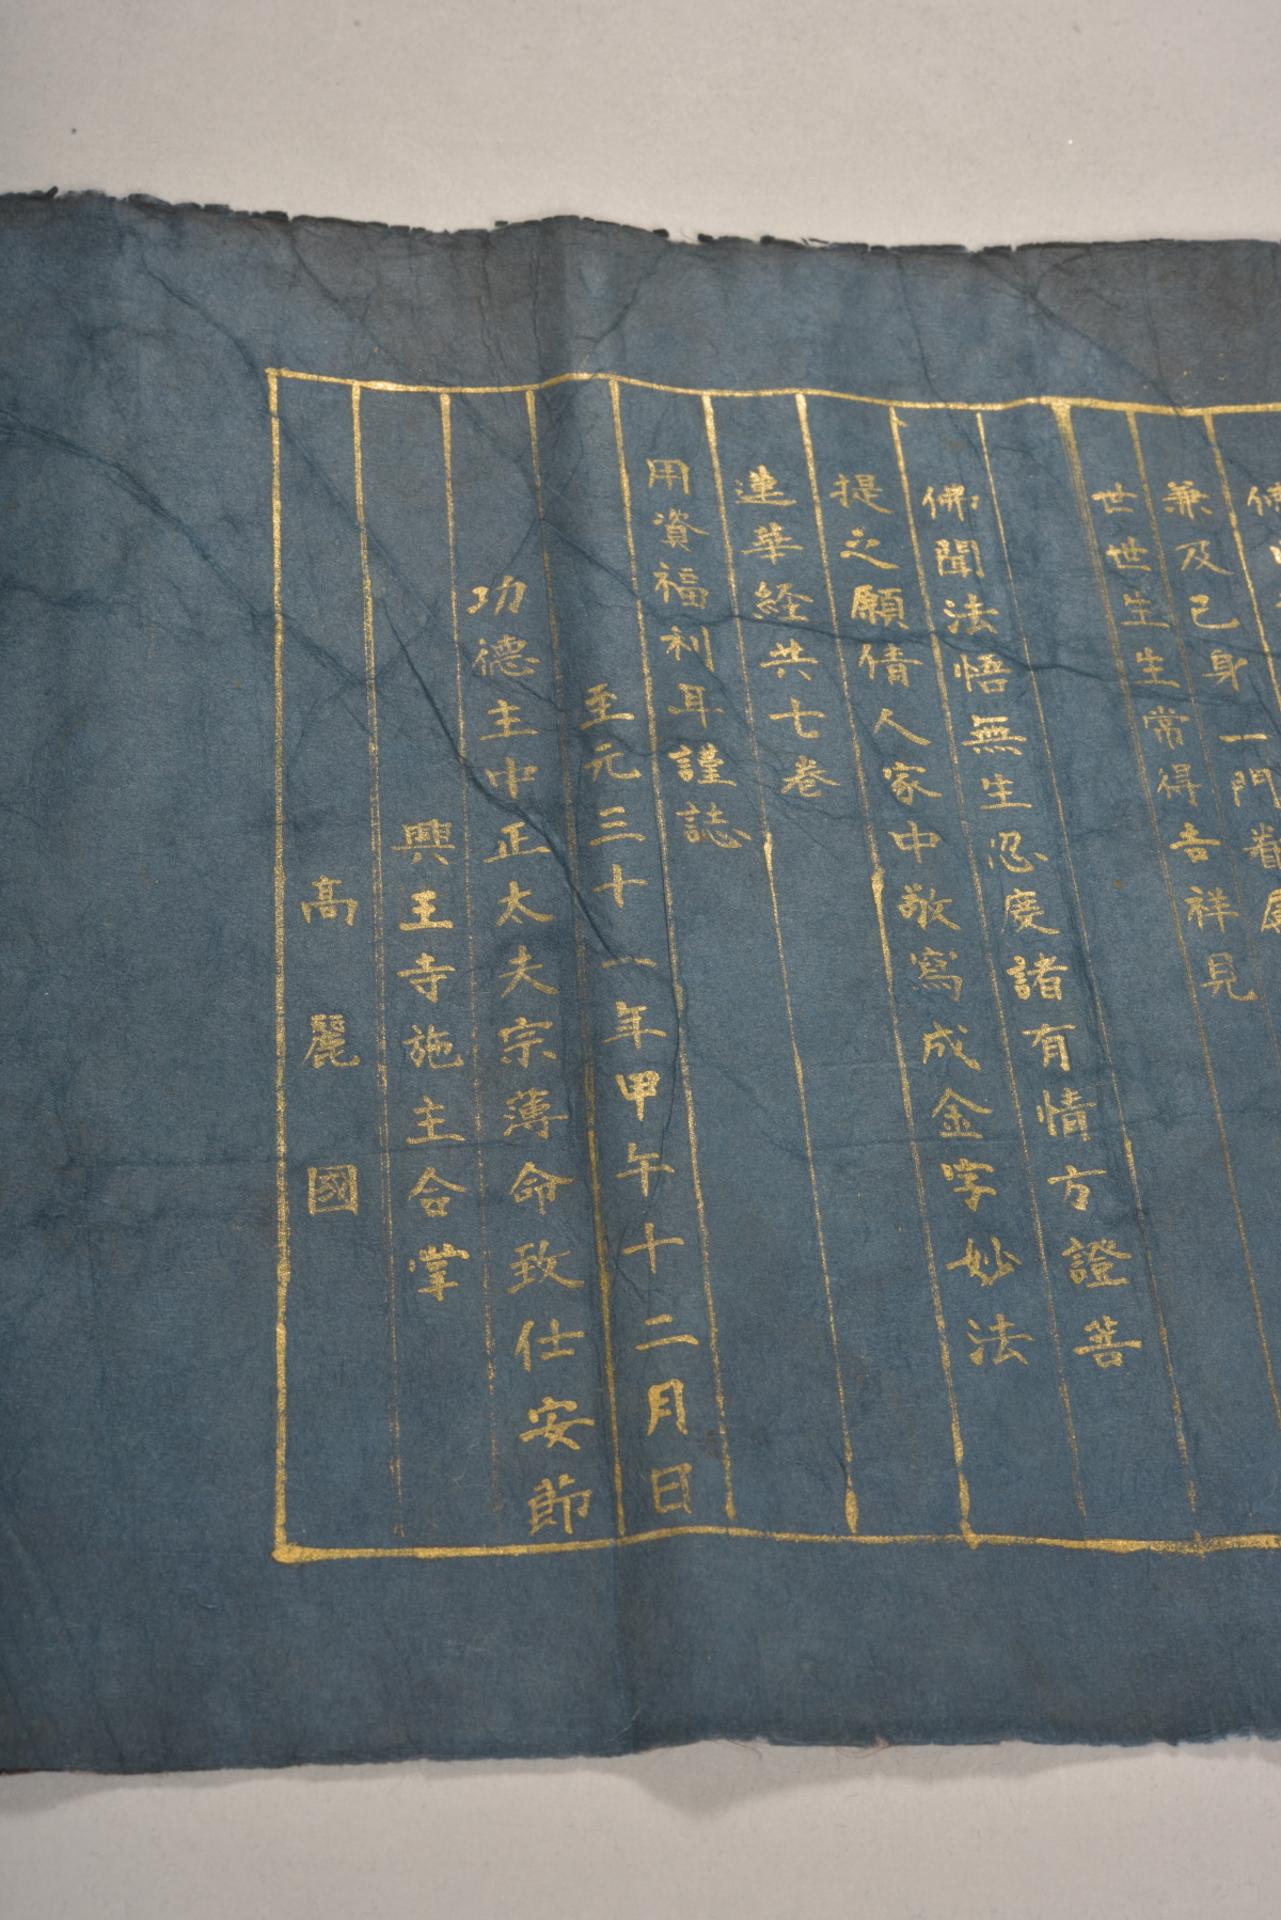 兼及己身一門眷属
世世生生常得吉祥見
佛聞法悟無生忍度諸有情方證菩
提之願倩人家中敬寫成金字妙法
蓮華経共七卷
用資福利耳謹誌
至元三十一年甲午十二月日
功德主中正太夫宗薄命致仕安節
興王寺施主合掌
高麗國